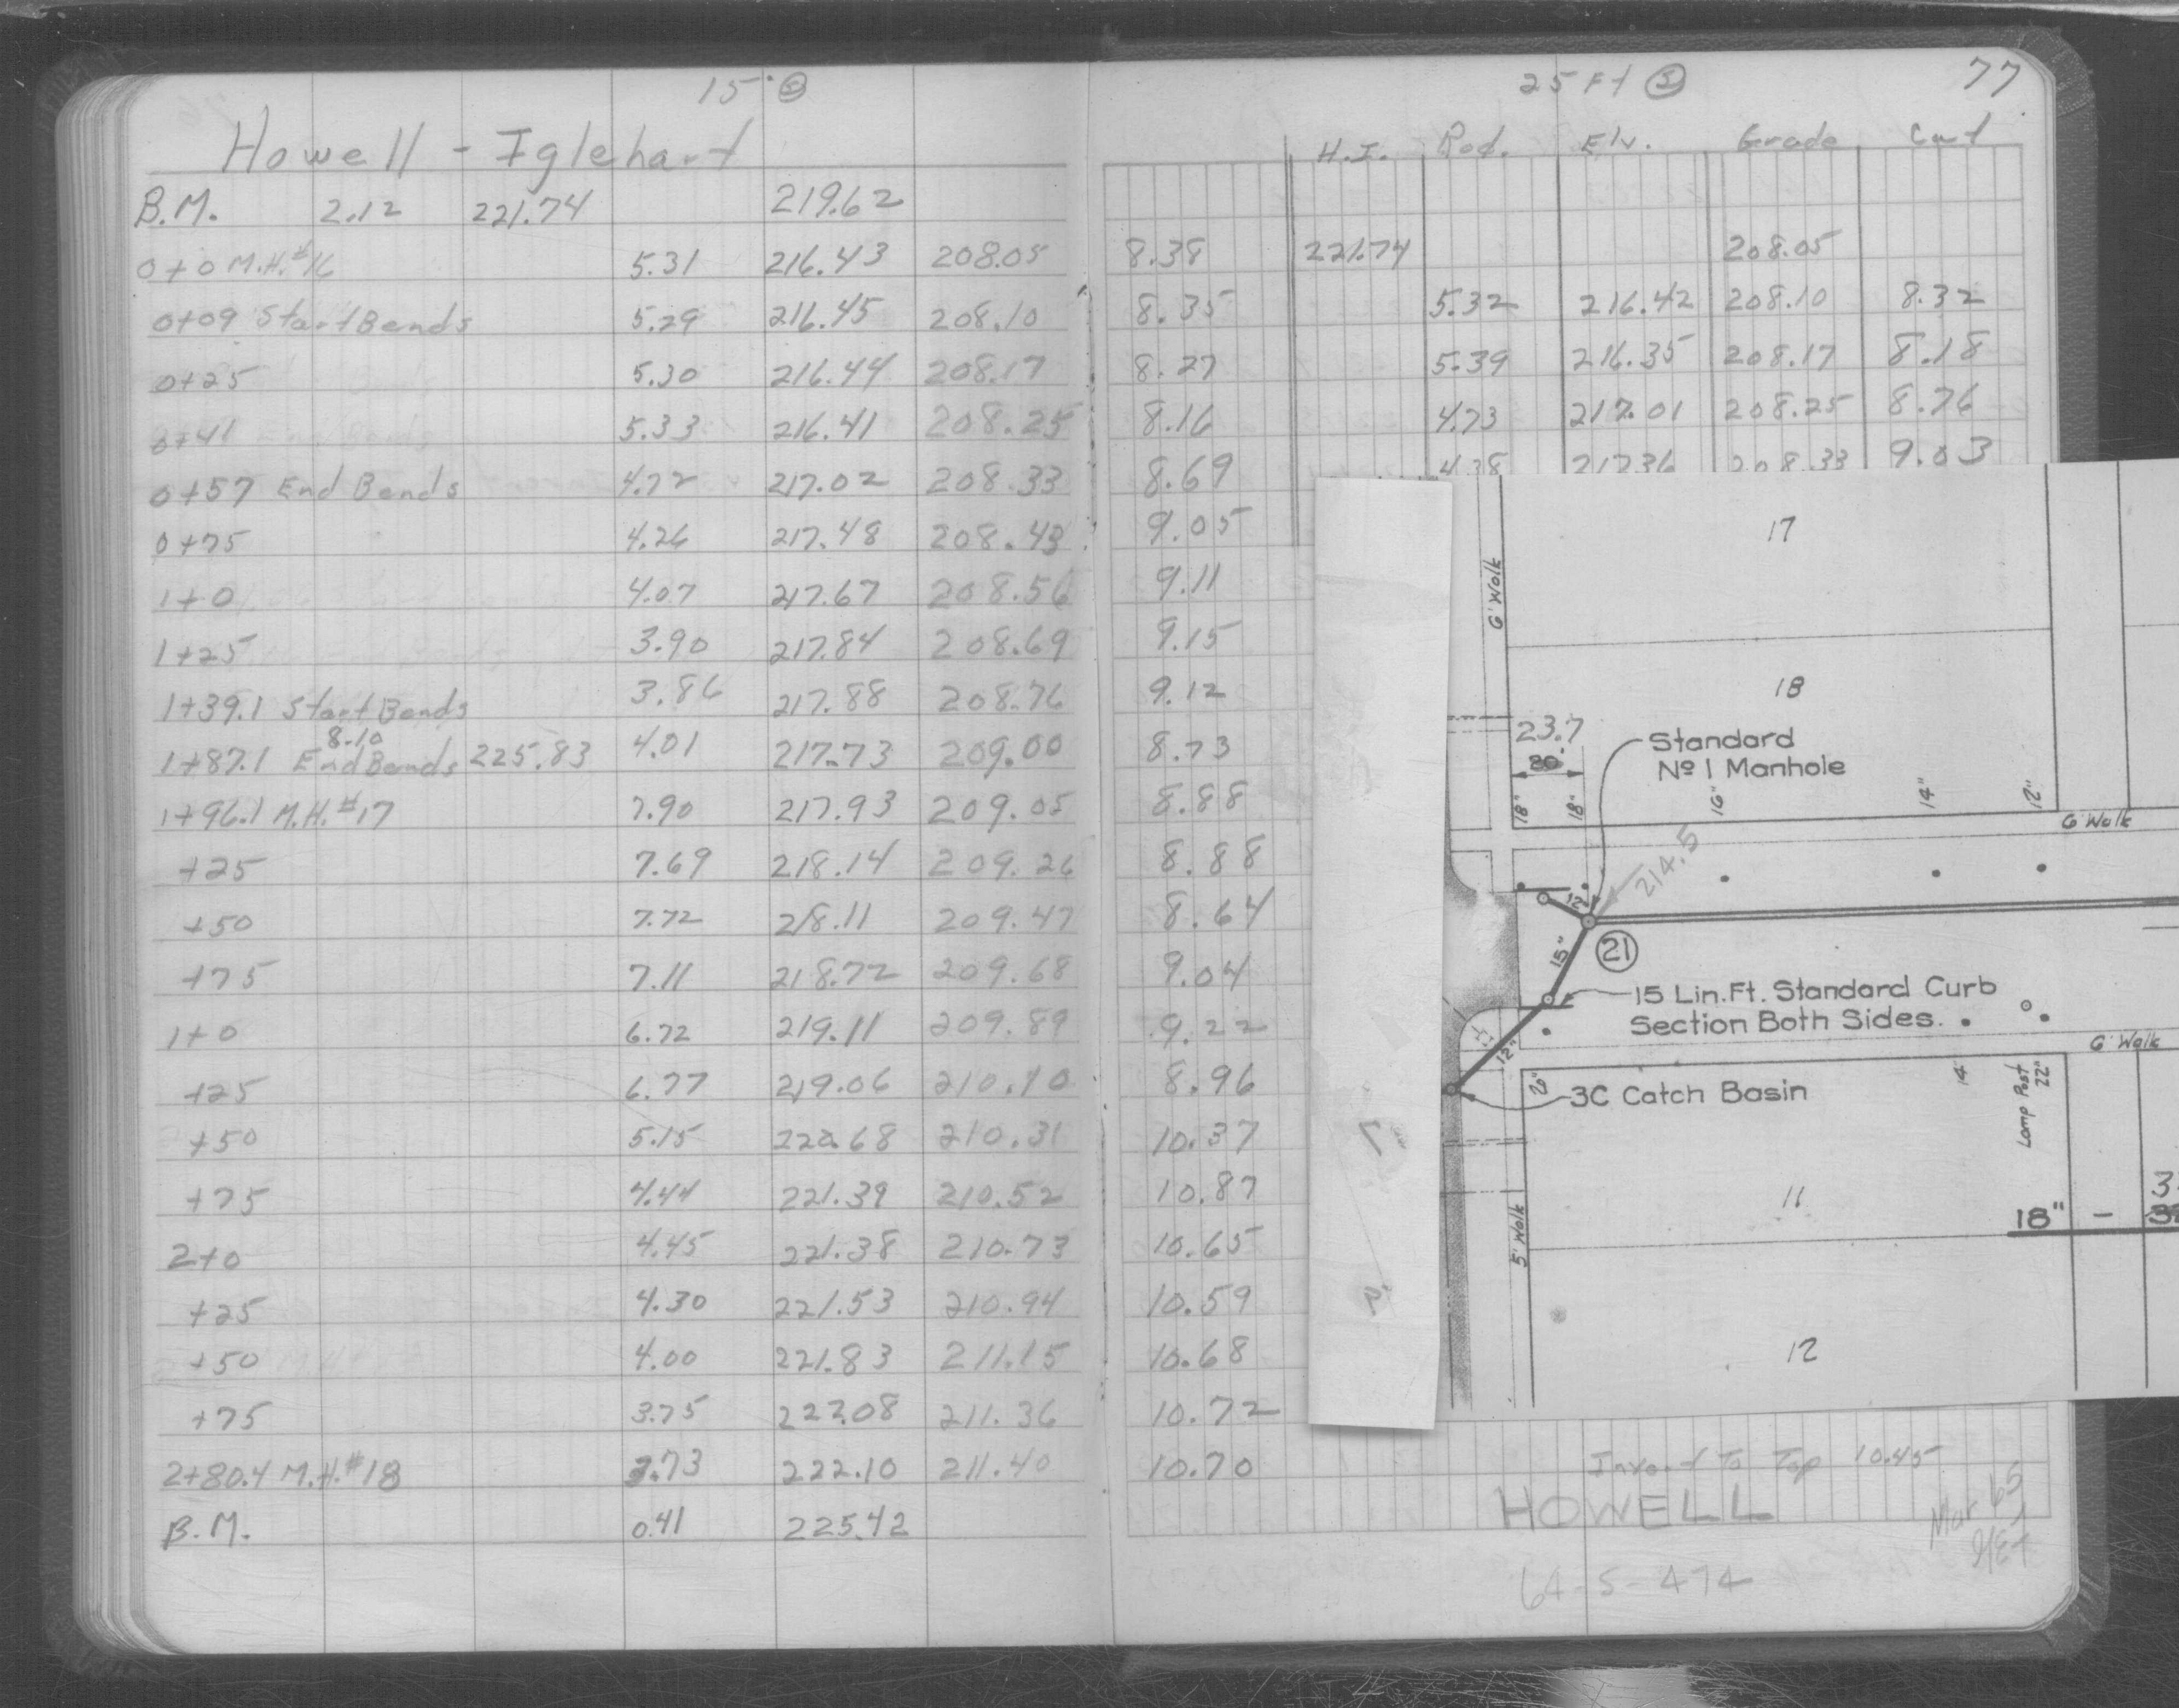 15' Ⓢ
Howell - Iglehart
B.M. 2.12 221.74 219.62
0+0 M.H.#16 5.31 216.43 208.05 8.38
0+09 Start Bends 5.29 216.45 208.10 8.35
0+25 5.30 216.44 208.17 8.27
0+41 5.33 216.41 208.25 8.16
0+57 End Bends 4.72 217.02 208.33 8.69
0+75 4.26 217.48 208.43 9.05
1+0 4.07 217.67 208.56 9.11
1+25 3.90 217.84 208.69 9.15
1+39.1 Start Bends 3.86 217.88 208.76 9.12
8.10
1+87.1 End Bends 225.83 4.01 217.73 209.00 8.73
1+96.1 M.H.#17 7.90 217.93 209.05 8.88
+25 7.69 218.14 209.26 8.88
+50 7.72 218.11 209.47 8.64
+75 7.11 218.72 209.68 9.04
1+0 6.72 219.11 209.89 9.22
+25 6.77 219.06 210.10 8.96
+50 5.15 220.68 210.31 10.37
+75 4.44 221.39 210.52 10.87
2+0 4.45 221.38 210.73 10.65
+25 4.30 221.53 210.94 10.59
+50 4.00 221.83 211.15 10.68
+75 3.75 222.08 211.36 10.72
2+80.4 M.H.#18 3.73 222.10 211.40 10.70
B.M. 0.41 225.42
25 Ft Ⓢ 77
H.I. Rod. Elv. Grade Cut
221.74 208.05
5.32 216.42 208.10 8.32
5.39 216.35 208.17 8.18
4.73 217.01 208.25 8.76
4.38 217.36 208.33 9.03
17
6' Walk
18
23.7
20'
Standard
No 1 Manhole
18" 18" 16" 14" 12"
6' Walk
214.5
12"
21
15"
15 Lin. Ft. Standard Curb
Section Both Sides.
12"
6' Walk
20"
3C Catch Basin
14"
Lamp Post
22"
11
5' Walk
18" -
12
Invert To Top 10.45
HOWELL
Mar 65
64-S-474